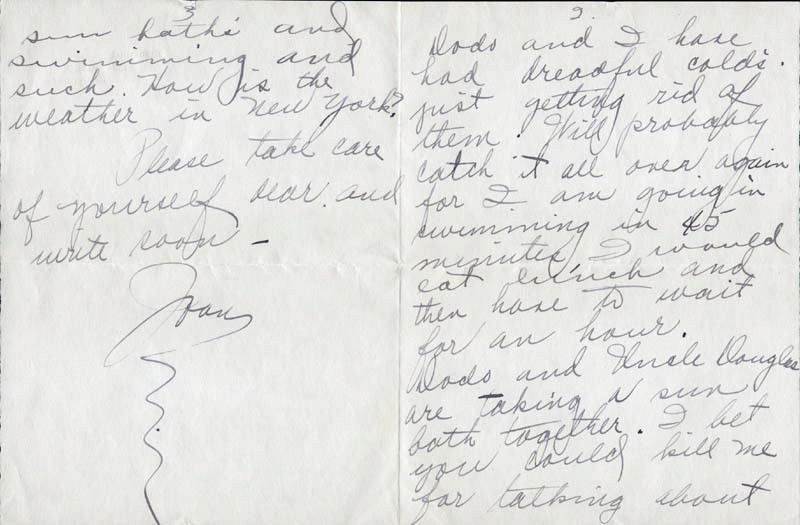 2
Dodo and I have
had dreadful colds.
just getting rid of
them. Will probably
catch it all over again
for I am going in
swimming in 45
minutes, I would
eat lunch and
then have to wait
for an hour.
Dodo and Uncle Douglas
are taking a sun
bath together. I bet
you could kill me
for talking about
3
sun baths and
swimming and
such. How is the
weather in New York?
Please take care
of yourself dear. and
write soon -
Joan